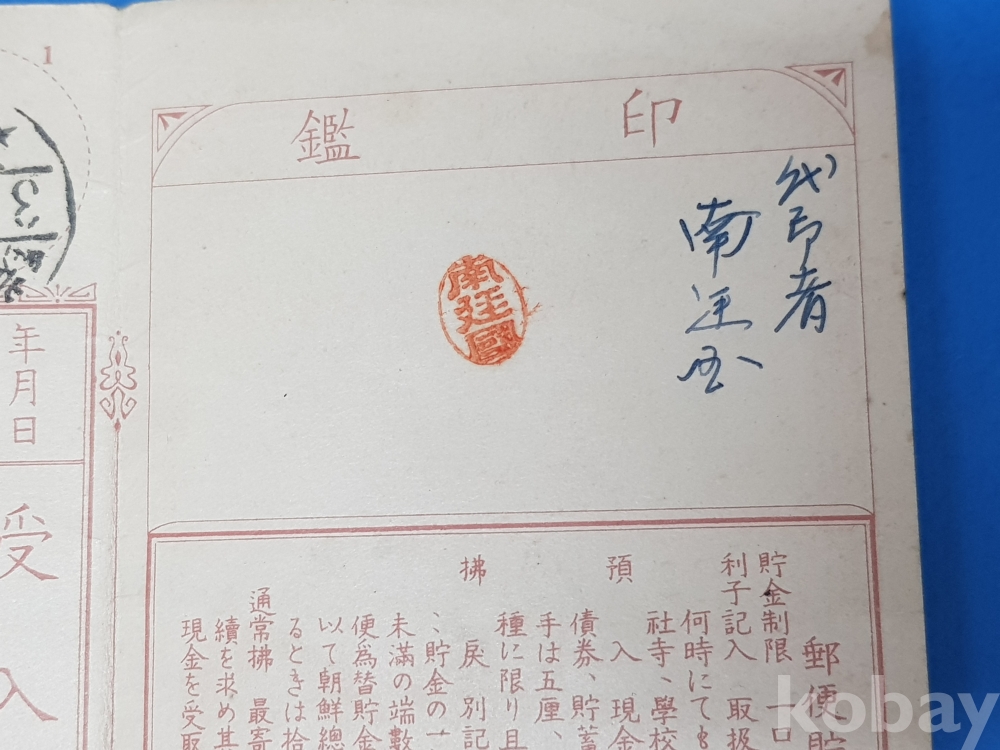 印鑑
代印者
南廷
南廷國
郵便貯
貯金制限 一口
利子記入 取扱
何時にても
社寺、學校
預入 現金
債券、貯蓄
手は五厘、
種に限り且
拂戾 別記
、貯金の一
未滿の端數
便爲替貯金
以て朝鮮總
るときは拾
通常拂 最寄
續を求め其
現金を受取
1
年月日
受入
kobay